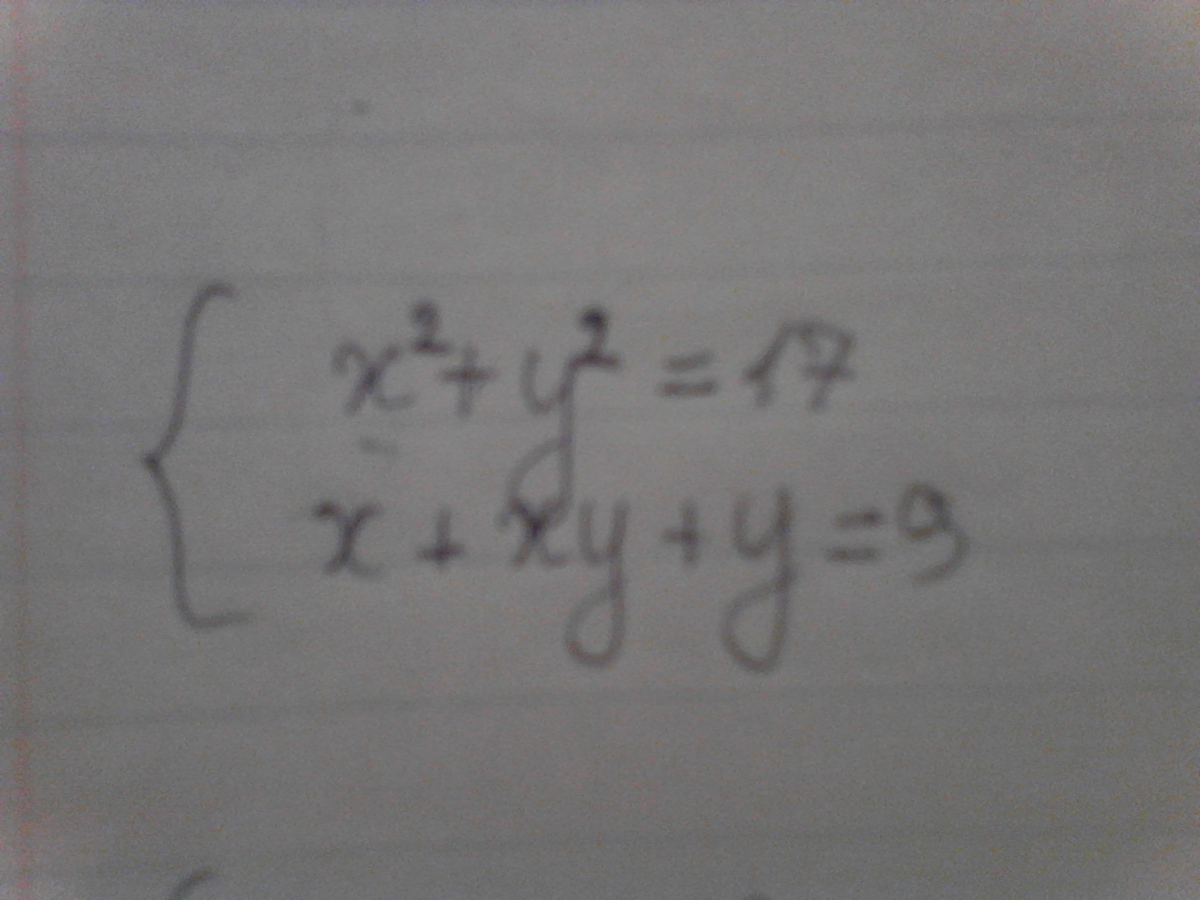 x² + y² = 17
x + xy + y = 9